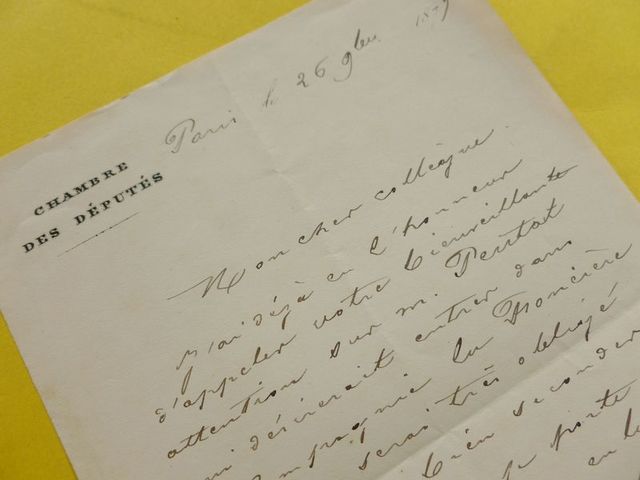 CHAMBRE
DES DÉPUTÉS
Paris le 26 9bre 1879
Mon cher collègue.
J'ai déjà eu l'honneur
d'appeler votre bienveillante
attention sur M. Perrtat
qui désirerait entrer dans
Compagnie la Foncière
serai très obligé
bien seconder
je porte
en le